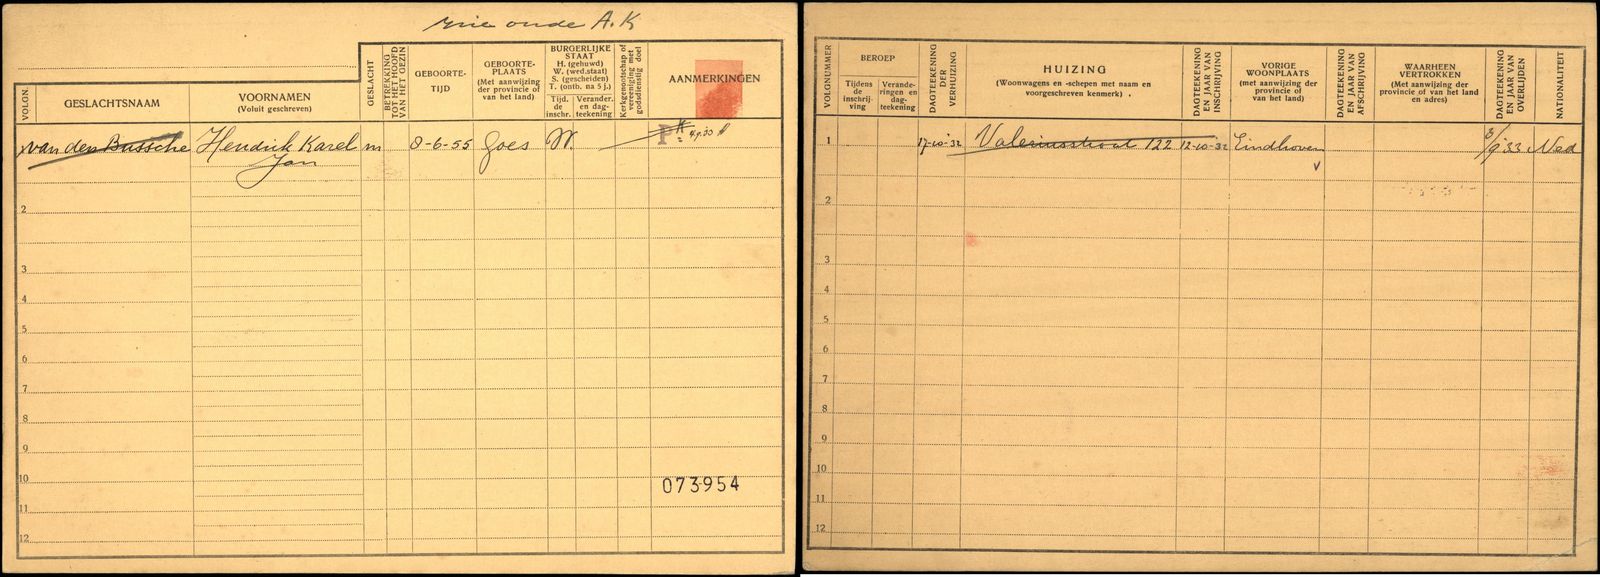 zie oude A.K
VOLGN.
GESLACHTSNAAM
VOORNAMEN
(Voluit geschreven)
GESLACHT
BETREKKING
TOT HET HOOFD
VAN HET GEZIN
GEBOORTE-
TIJD
GEBOORTE-
PLAATS
(Met aanwijzing
der provincie of
van het land)
BURGERLIJKE
STAAT
H. (gehuwd)
W. (wed.staat)
S. (gescheiden)
T. (ontb. na 5 j.)
Tijd.
de
inschr.
Verander.
en dag-
teekening
Kerkgenootschap of
vereeniging met
godsdienstig doel
AANMERKINGEN
van den Bussche Hendrik Karel m 8-6-55 Goes W. P
Jan
2
3
4
5
6
7
8
9
10
073954
11
12
VOLGNUMMER
BEROEP
Tijdens
de
inschrij-
ving
Verande-
ringen en
dag-
teekening
DAGTEEKENING
DER
VERHUIZING
HUIZING
(Woonwagens en -schepen met naam en
voorgeschreven kenmerk)
DAGTEEKENING
EN JAAR VAN
INSCHRIJVING
VORIGE
WOONPLAATS
(met aanwijzing der
provincie of
van het land)
DAGTEEKENING
EN JAAR VAN
AFSCHRIJVING
WAARHEEN
VERTROKKEN
(Met aanwijzing der
provincie of van het land
en adres)
DAGTEEKENING
EN JAAR VAN
OVERLIJDEN
NATIONALITEIT
1 17-10-32 Valeriusstraat 122 12-10-32 Eindhoven 8/9 33 Ned
2
3
4
5
6
7
8
9
10
11
12